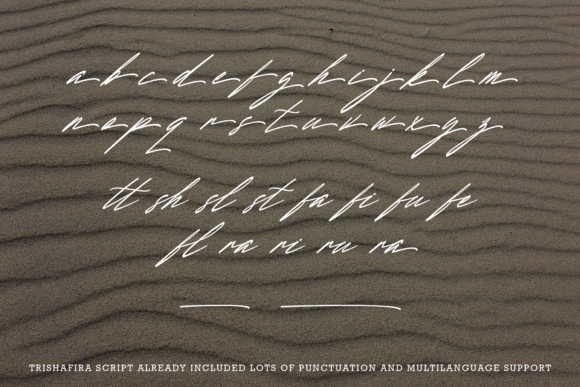 a b c d e f g h i j k l m
n o p q r s t u v w x y z
tt sh sl st fa fi fu fe
fl ra ri ru ra
TRISHAFIRA SCRIPT ALREADY INCLUDED LOTS OF PUNCTUATION AND MULTILANGUAGE SUPPORT